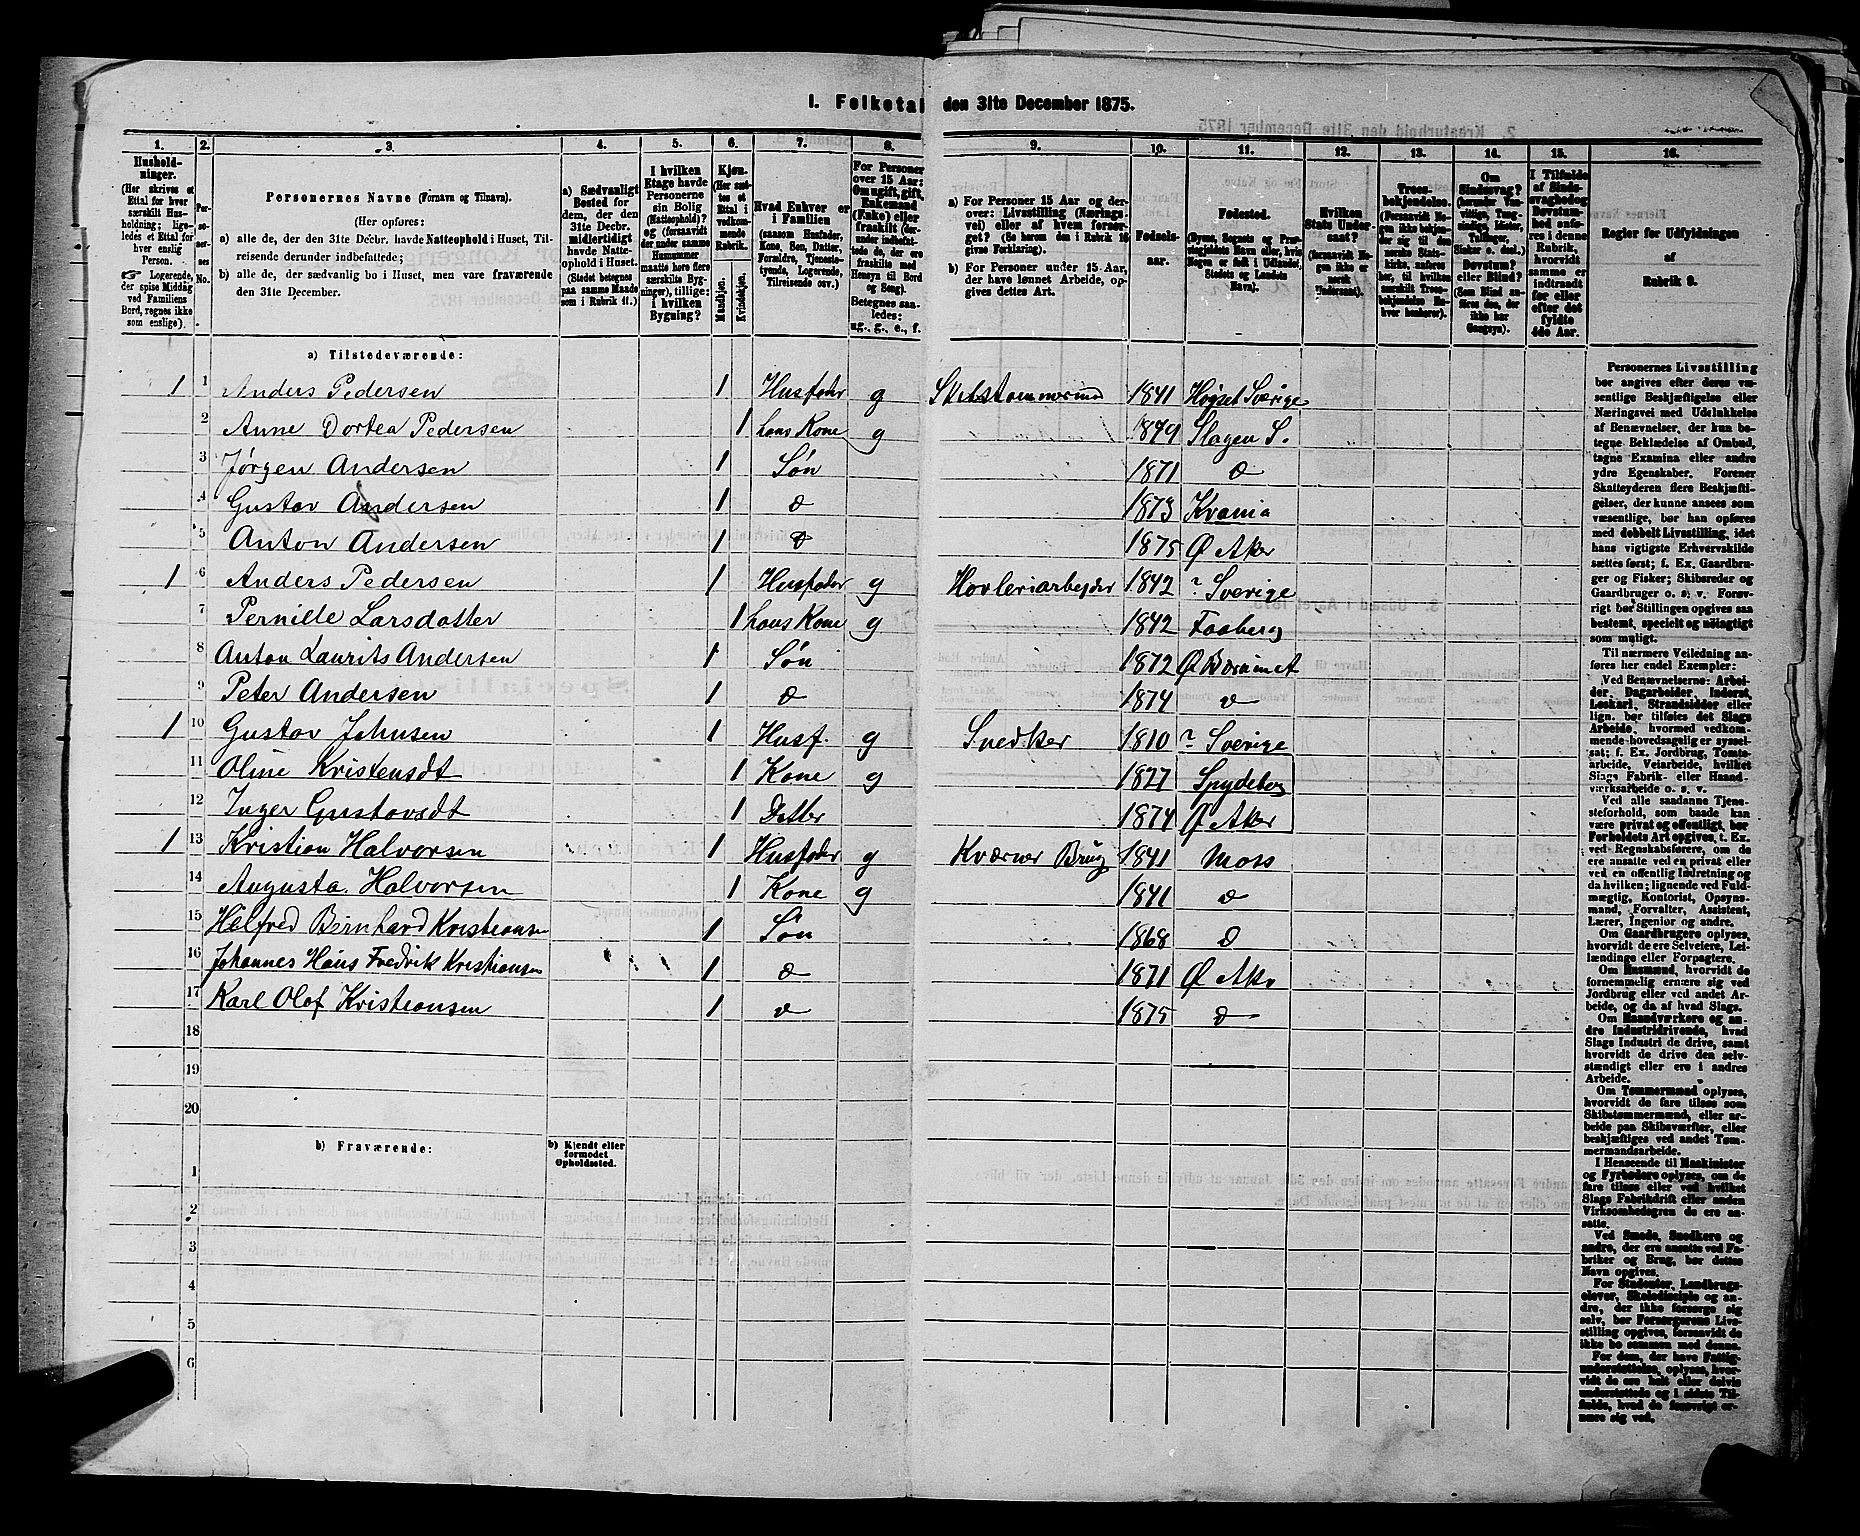 I. Folketal den 31te December 1875.
1. 2. 3. 4. 5. 6. 7. 8. 9. 10. 11. 12. 13. 14. 15. 16.
Husholdninger. (Her skrives et Ettal for hver særskilt Husholdning; ligeledes et Ettal for hver enslig Person. ☞ Logerende, der spise Middag ved Familiens Bord, regnes ikke som enslige).
Personernes No.
Personernes Navne (Fornavn og Tilnavn).
(Her opføres:
a) alle de, der den 31te Decbr. havde Natteophold i Huset, Tilreisende derunder indbefattede;
b) alle de, der sædvanlig bo i Huset, men vare fraværende den 31te December.
a) Sædvanligt Bosted for dem, der den 31te Decbr. midlertidigt havde Natteophold i Huset. (Stedet betegnes paa samme Maade som i Rubrik 11.)
I hvilken Etage havde Personerne sin Bolig (Natteophold)? og (forsaavidt der under samme Husnummer maatte høre flere særskilte Bygninger), tillige: i hvilken Bygning?
Kjøn. (Her sættes et Ettal i vedkommende Rubrik. Mandkjøn. Kvindekjøn.
Hvad Enhver er i Familien (saasom Husfader, Kone, Søn, Datter, Forældre, Tjenestetyende, Logerende, Tilreisende osv.)
For Personer over 15 Aar: Om ugift, gift, Enkemand (Enke) eller fraskilt (derunder indbefattede de, der ere fraskilte med Hensyn til Bord og Seng). Betegnes saaledes: ug., g., e., f.
a) For Personer 15 Aar og derover: Livsstilling (Næringsvei) eller af hvem forsørget? (Se herom den i Rubrik 16 givne Forklaring).
b) For Personer under 15 Aar, der have lønnet Arbeide, opgives dettes Art.
Fødselsaar.
Fødested. (Byens, Sognets og Præstegjældets Navn, eller, hvis Nogen er født i Udlandet, Stedets og Landets Navn).
Hvilken Stats Undersaat? (forsaavidt Nogen ikke er norsk Undersaat).
Troesbekjendelse. (Forsaavidt Nogen ikke bekjender sig til den norske Statskirke, anføres her, til hvilken særskilt Troesbekjendelse Enhver henhører).
Om Sindssvag? (herunder Vanvittige, Tungsindige, Idioter, Tullinger, Sinker o. desl.), Døvstum? eller Blind? (Som Blind anføres den, der ikke har Gangsyn).
I Tilfælde af Sindssvaghed og Døvstumhed anføres i denne Rubrik, hvorvidt samme er indtraadt før eller efter det fyldte 4de Aar.
Regler for Udfyldningen af Rubrik 9.
a) Tilstedeværende:
1 1 Anders Pedersen 1 Husfader g Skibstømmermd 1841 Hogset Sverige
2 Anne Dortea Pedersen 1 hans Kone g 1849 Slagen S.
3 Jørgen Andersen 1 Søn 1871 d
4 Gustav Andersen 1 d 1873 Krania
5 Anton Andersen 1 d 1875 Ø Aker
1 6 Anders Pedersen 1 Husfader g Hovleriarbejder 1842 ? Sverige
7 Pernille Larsdatter 1 hans Kone g 1842 Faaberg
8 Anton Laurits Andersen 1 Søn 1872 Ø Bærumet
9 Peter Andersen 1 d 1874 d
1 10 Gustav Johnsen 1 Husf. g Snedker 1810 ? Sverige
11 Oline Kristensdt 1 Kone g 1827 Spydeberg
12 Inger Gustavsdt 1 Datter 1874 Ø Aker
1 13 Kristian Halvorsen 1 Husfader g Kværner Brug 1841 Moss
14 Augusta Halvorsen 1 Kone g 1841 d
15 Helfred Bernhard Kristiansen 1 Søn 1868 d
16 Johannes Hans Fredrik Kristiansen 1 d 1871 Ø Aker
17 Karl Olof Kristiansen 1 d 1875 d
18
19
20
b) Fraværende:
b) Kjendt eller formodet Opholdssted.
1
2
3
4
5
6
Personernes Livsstilling bør angives efter deres væsentlige Beskjæftigelse eller Næringsvei med Udelukkelse af Benævnelser, der kun betegne Beklædelse af Ombud, tagne Examina eller andre ydre Egenskaber. Forener Skatteyderen flere Beskjæftigelser, der kunne ansees som væsentlige, bør han opføres med dobbelt Livsstilling, idet hans vigtigste Erhvervskilde sættes først; s. Ex. Gaardbruger og Fisker; Skibsreder og Gaardbruger o. s. v. Forøvrigt bør Stillingen opgives saa bestemt, specielt og nøiagtigt som muligt.
Til nærmere Veiledning anføres her endel Exempler:
Ved Benævnelserne: Arbeider, Dagarbeider, Inderst, Løskarl, Strandsidder eller lign. bør tilføies det Slags Arbeide, hvormed vedkommende hovedsagelig er sysselsat; f. Ex. Jordbrug, Tomtearbeide, Veiarbeide, hvilket Slags Fabrik- eller Haandværksarbeide o. s. v.
Ved alle saadanne Tjenesteforhold, som baade kan være privat og offentligt, bør Forholdets Art opgives, t. Ex. ved Regnskabsførere, om de ere ansatte ved en privat eller ved en offentlig Indretning og da hvilken; lignende ved Fuldmægtig, Kontorist, Opsynsmand, Forvalter, Assistent, Lærer, Ingeniør og andre.
Om Gaardbrugere oplyses, hvorvidt de ere Selveiere, Leilændinge eller Forpagtere.
Om Husmænd, hvorvidt de fornemmelig ernære sig ved Jordbrug eller ved andet Arbeide, og da af hvad Slags.
Om Haandværkere og andre Industridrivende, hvad Slags Industri de drive, samt hvorvidt de drive den selvstændigt eller ere i andres Arbeide.
Om Tømmermænd oplyses, hvorvidt de fare tilsøs som Skibstømmermænd, eller arbeide paa Skibsværfter, eller beskjæftiges ved andet Tømmermandsarbeide.
I Henseende til Maskinister og Fyrbødere oplyses, om de fare tilsøs eller ved hvilket Slags Fabrikdrift eller anden Virksomhedsgren de ere ansatte.
Ved Smede, Snedkere og andre, der ere ansatte ved Fabriker og Brug, bør dettes Navn opgives.
For Studenter, Landbrugselever, Skoledisciple og andre, der ikke forsørge sig selv, bør Forsørgerens Livsstilling opgives, forsaavidt de ikke bo sammen med denne.
For dem, der have Fattigunderstøttelse, oplyses, hvorvidt de ere helt eller delvis understøttede og i sidste Tilfælde, hvad de forøvrigt ernære sig ved.